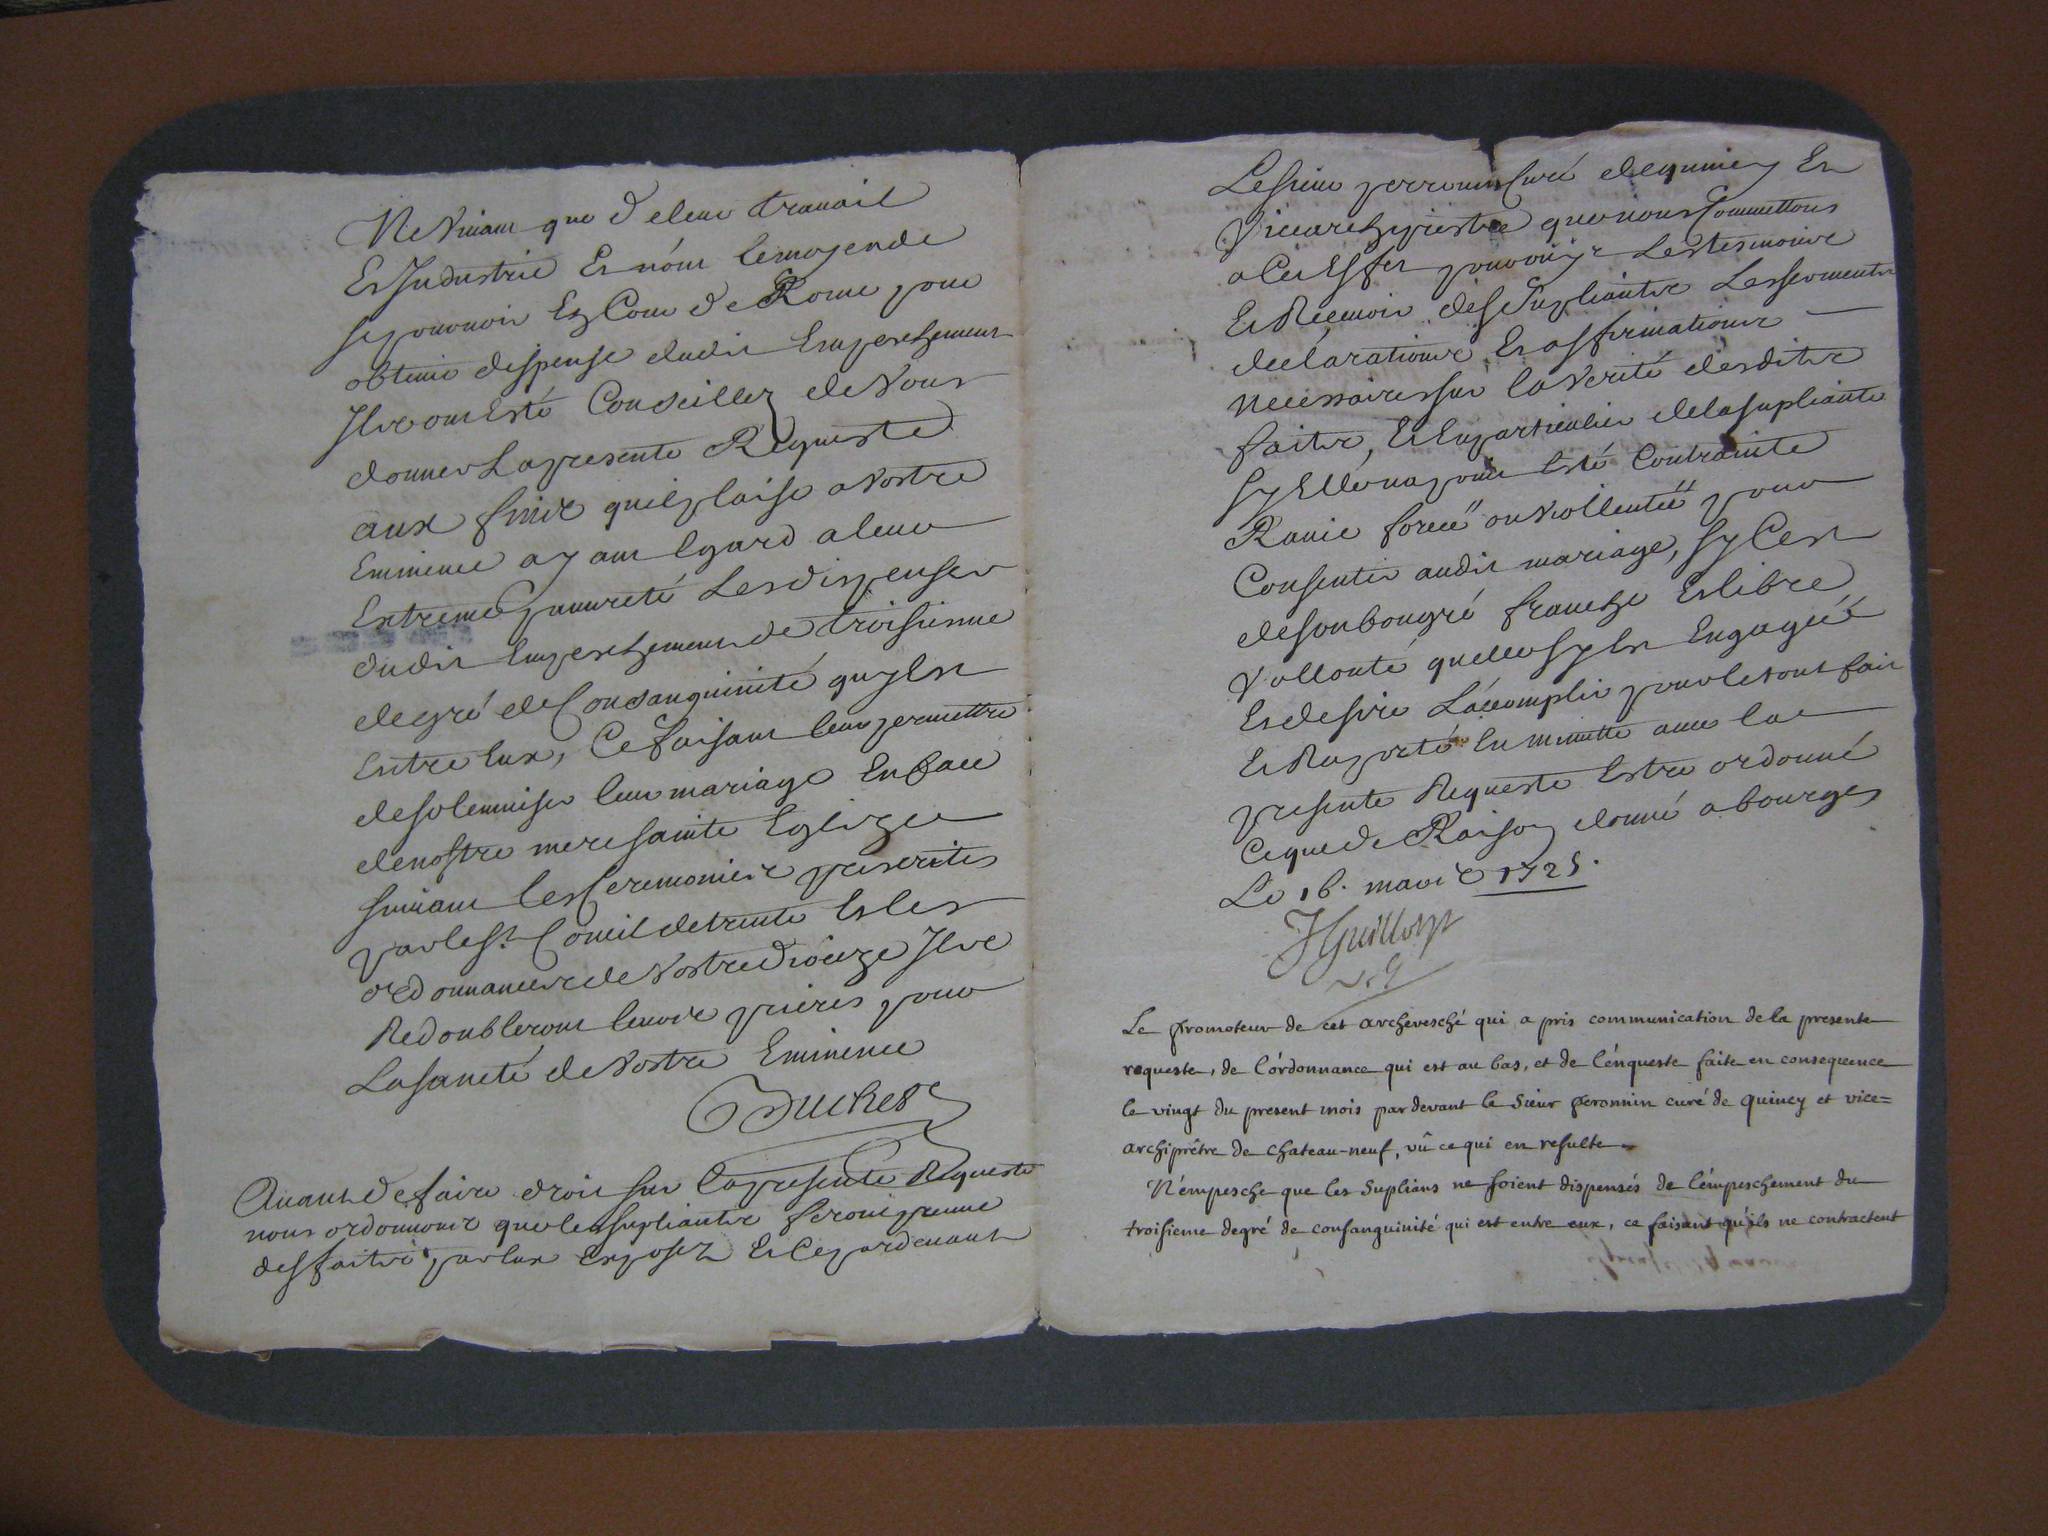 Ne Vivant que de leur travail
Et Industrie Et n'ont le moyen de
se pourvoir En Cour de Rome pour
obtenir dispense dudit Empeschement
Ils ont Esté Conseillez de Vous
donner La presente Requeste
aux fins qu'il plaise a Vostre
Eminence ayant Egard a leur
Extreme pauvreté Les dispenser
dudit Empeschement de troisieme
degré de Consanguinité qui Est
Entre Eux, Ce faisant leur permettre
de solemniser leur mariage En face
de nostre mere sainte Eglize
suivant les Ceremonies prescrites
par le St. Concil de trente Et les
ordonnances de Vostre Dioceze Ils
Redoubleront leurs prieres pour
La santé de Vostre Eminence
Duchet
Avant de faire droit sur la presente Requeste
nous ordonnons que les supliants feront preuve
des faits par Eux Exposez Et Ce pardevant
Le sieur perronnin Curé de quincy Et
Vicearchiprestre que nous Commettons
a Cet Effet pour ouyr Les tesmoins
Et Recevoir des Supliants Les serments
declarations Et affirmations
necessaires sur la Verité desdits
faits, Et En particulier de la supliante
sy Elle na point Esté Contrainte
Ravie forcée ou Viollentée pour
Consentir audit mariage, sy Cest
de son bon gré franche Et libre
Vollonté quelle sy est Engagée
Et desire L'accomplir pour le tout fait
Et Raporté En minutte avec la
presente Requeste Estre ordonné
Ce que de Raison donné a bourges
Le 16. mars 1725.
JGuilloyt
v.g
Le promoteur de cet archevesché qui a pris communication de la presente
requeste, de l'órdonnance qui est au bas, et de l'énqueste faite en consequence
le vingt du present mois par devant le Sieur peronnin curé de quincy et vice=
archiprêtre de chateau-neuf, vû ce qui en resulte.
N'émpesche que les Suplians ne soient dispensés de l'émpeschement du
troisieme degré de consanguinité qui est entre eux, ce faisant qu'ils ne contractent